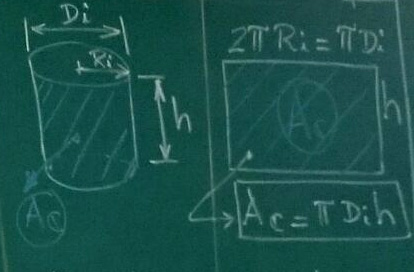 Di
Ri
h
Ac
2πRi = πDi
Ac
h
Ac = πDih